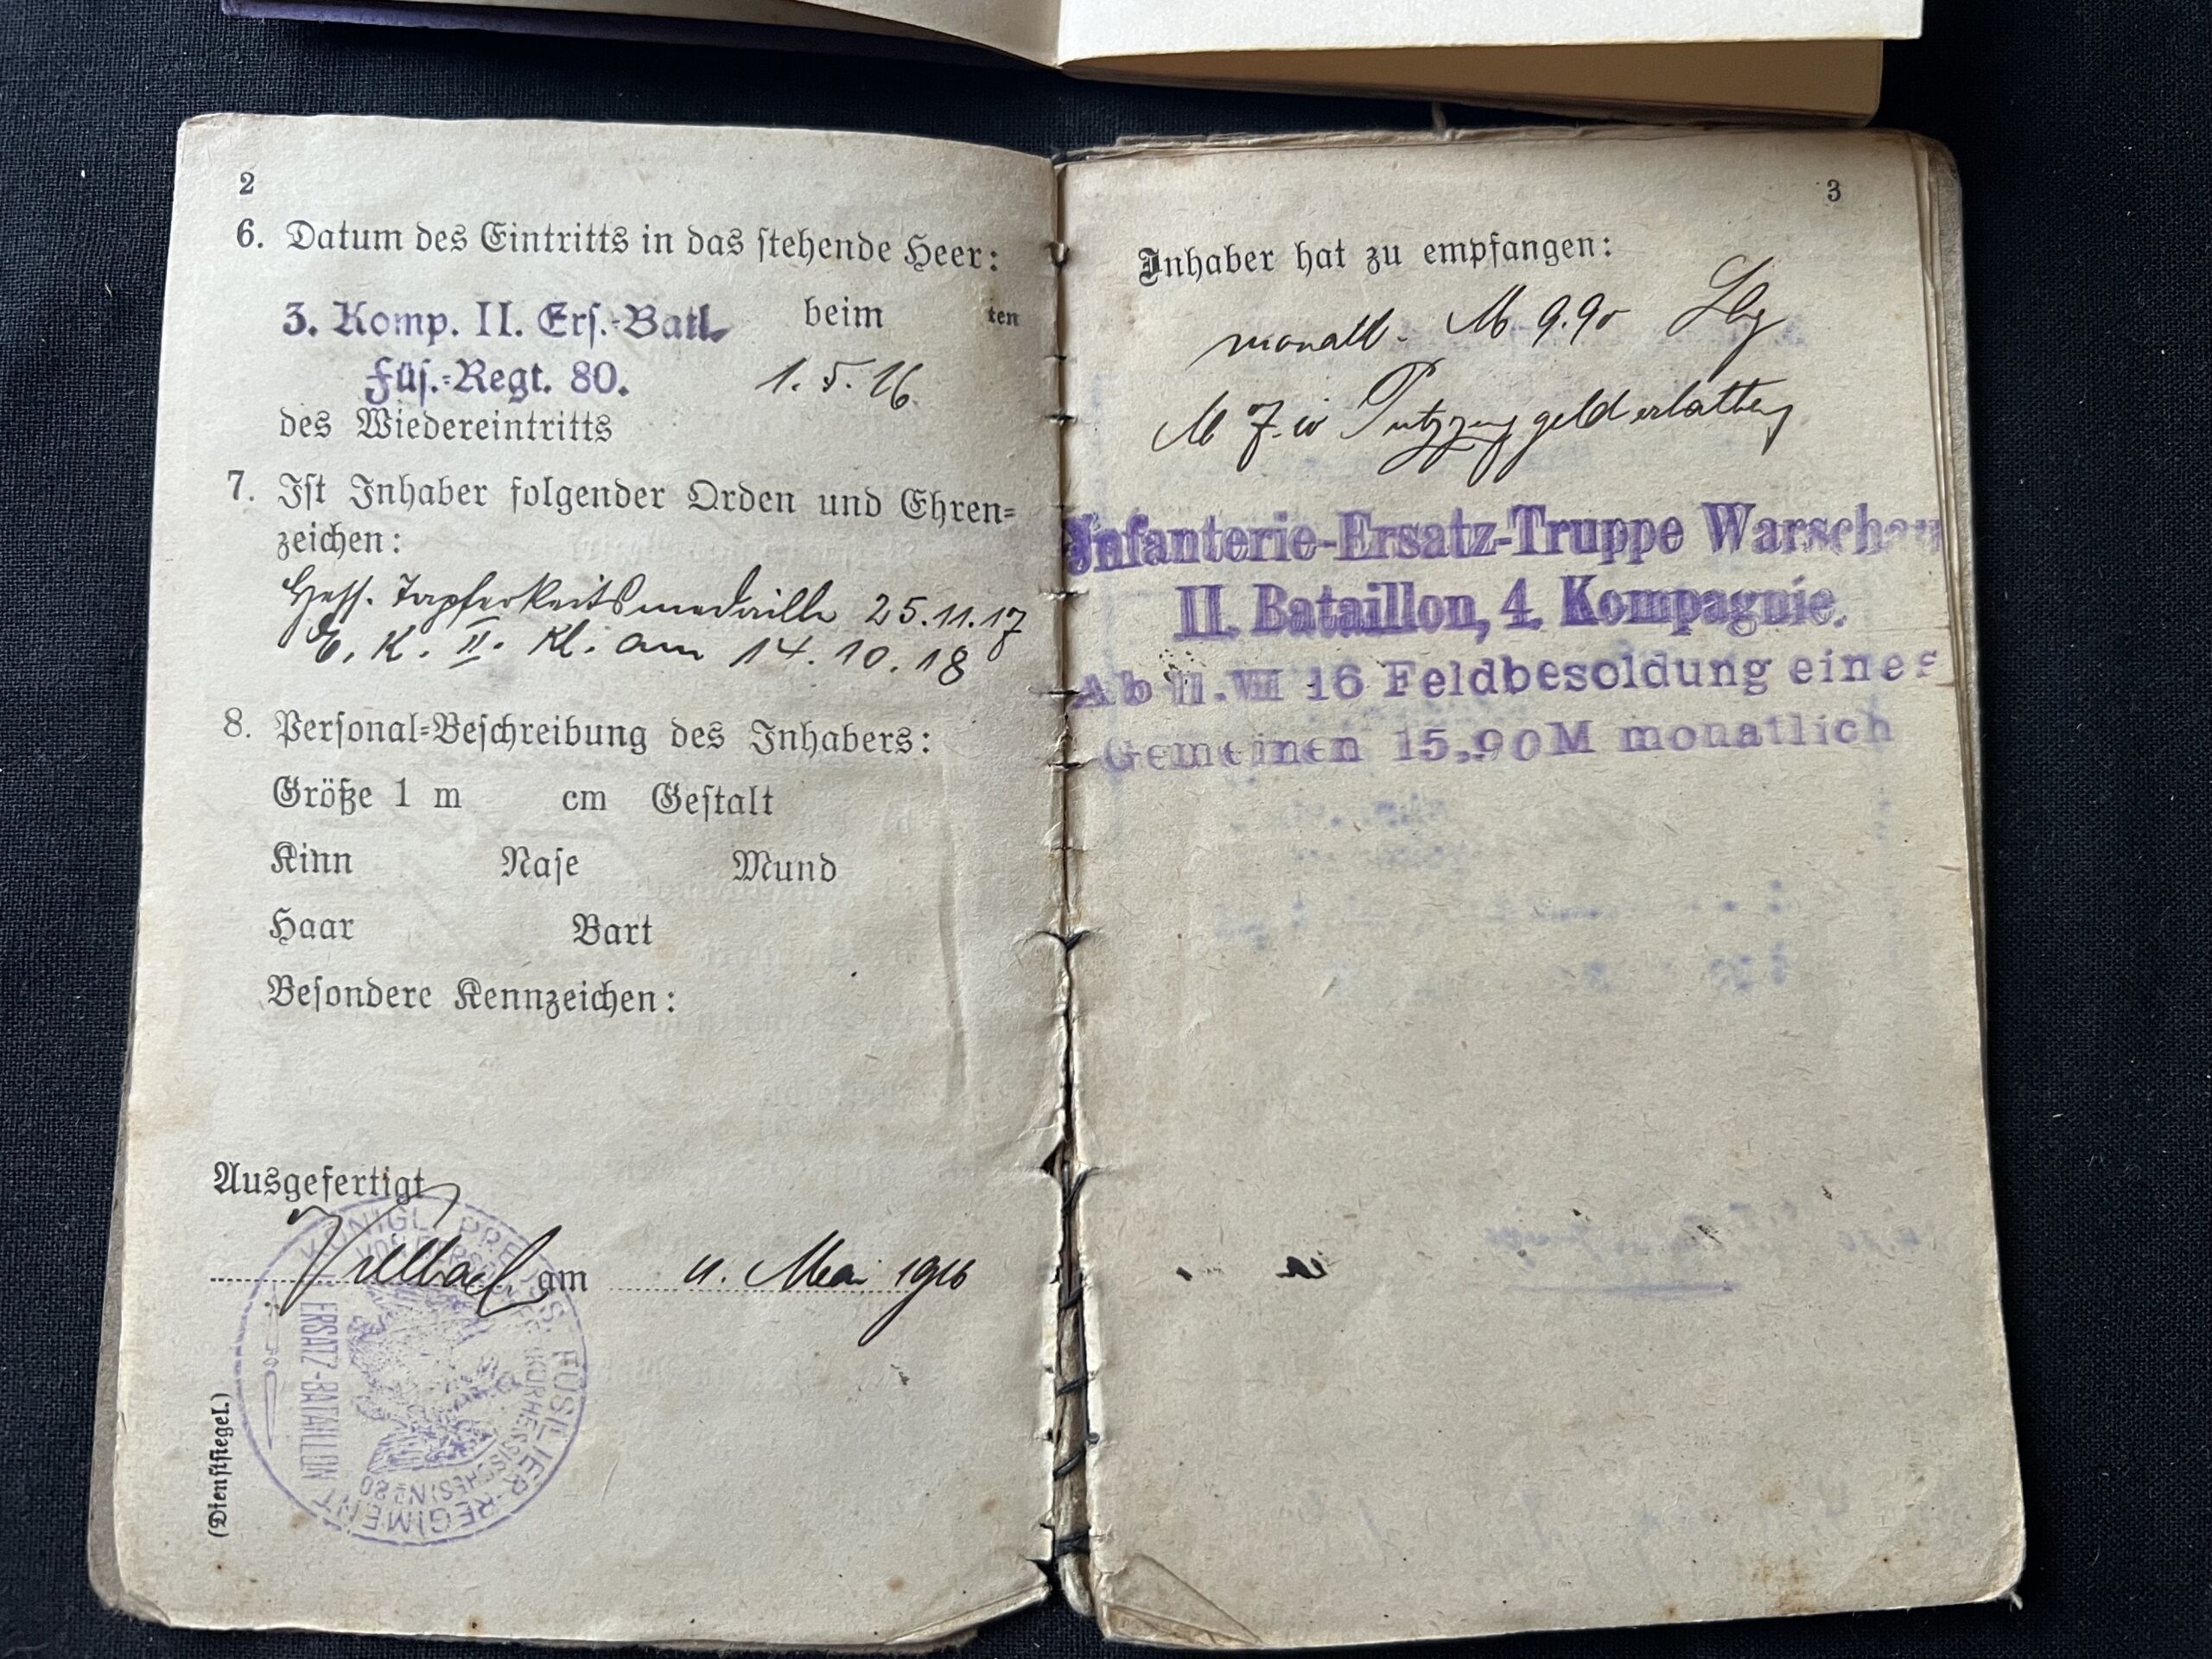 2
6. Datum des Eintritts in das stehende Heer:
3. Komp. II. Ers.-Batl. beim ten
Füs.-Regt. 80. 1.5.16
des Wiedereintritts
7. Ist Inhaber folgender Orden und Ehren-
zeichen:
Hess. Tapferkeitsmedaille 25.11.17
E. K. II. Kl. am 14.10.18
8. Personal-Beschreibung des Inhabers:
Größe 1 m cm Gestalt
Kinn Nase Mund
Haar Bart
Besondere Kennzeichen:
Ausgefertigt
am 11. Mai 1916
(Dienstsiegel.)
KÖNIGL. PREUSS. FÜSILIER-REGIMENT
VON GERSDORFF (KURHESSISCHES) Nº 80
ERSATZ-BATAILLON
3
Inhaber hat zu empfangen:
monatl. M 9.90
M Putzzeuggeld erhalten
Infanterie-Ersatz-Truppe Warschau
II. Bataillon, 4. Kompagnie.
Ab 11.VII 16 Feldbesoldung eines
Gemeinen 15,90M monatlich